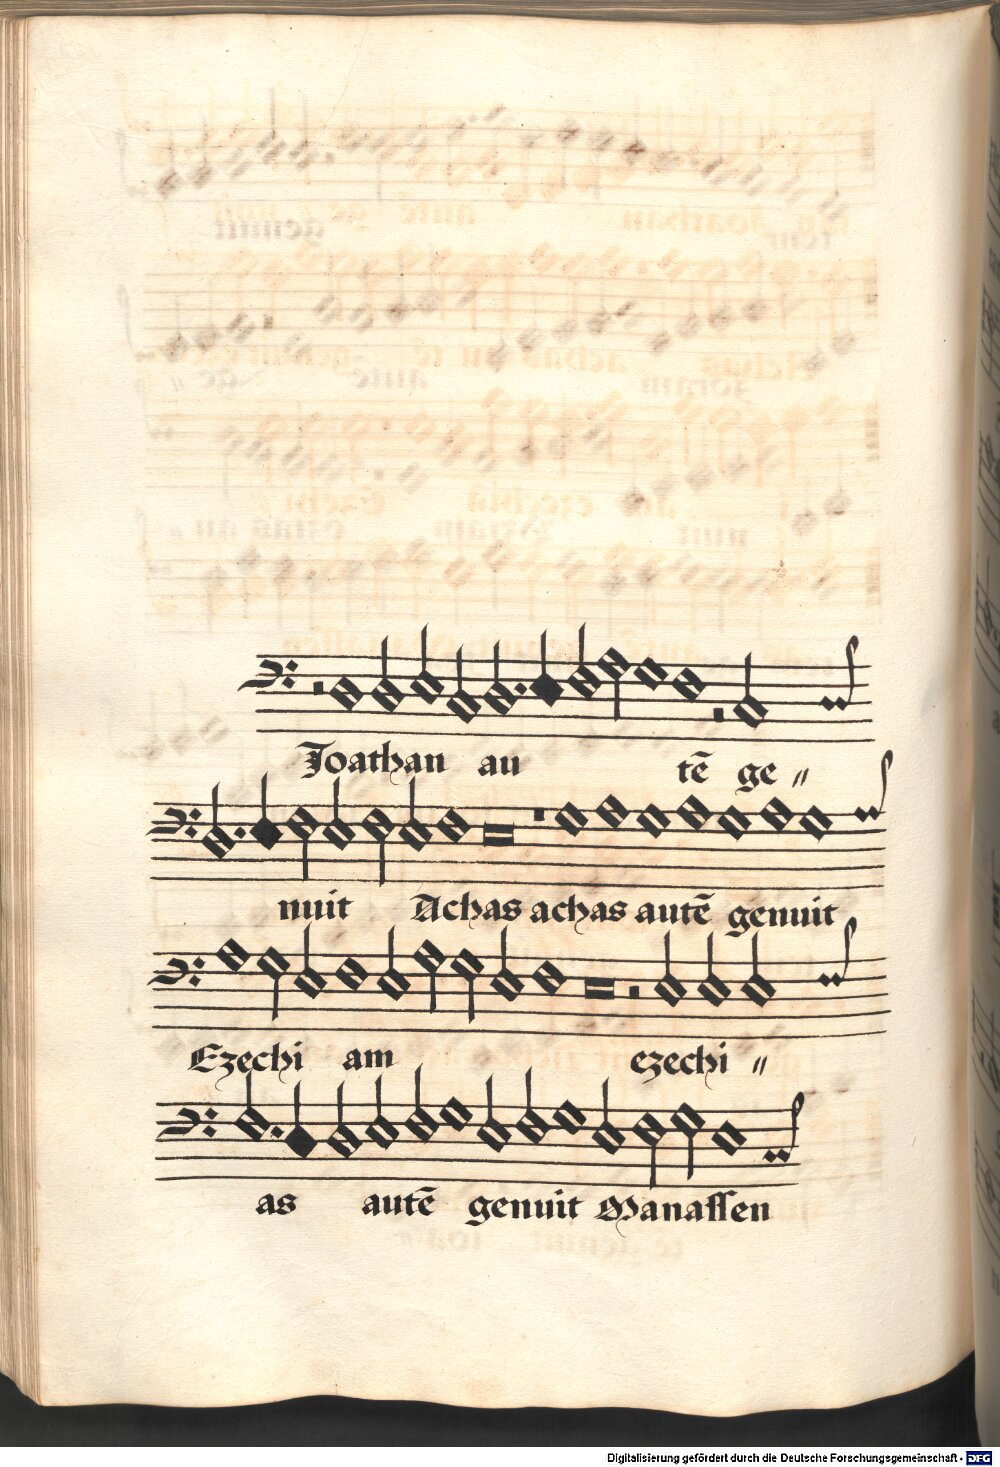 Joathan au tē ge〃
nuit Achas achas autē genuit
Ezechi am ezechi〃
as autē genuit Manassen
Digitalisierung gefördert durch die Deutsche Forschungsgemeinschaft - DFG